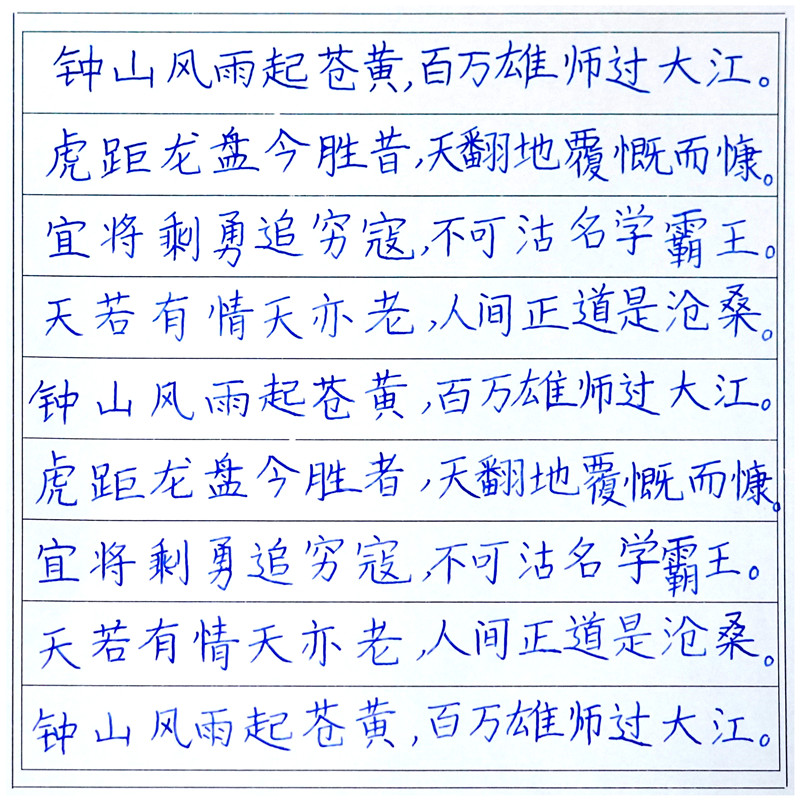 钟山风雨起苍黄,百万雄师过大江。
虎距龙盘今胜昔,天翻地覆慨而慷。
宜将剩勇追穷寇,不可沽名学霸王。
天若有情天亦老,人间正道是沧桑。
钟山风雨起苍黄,百万雄师过大江。
虎距龙盘今胜者,天翻地覆慨而慷。
宜将剩勇追穷寇,不可沽名学霸王。
天若有情天亦老,人间正道是沧桑。
钟山风雨起苍黄,百万雄师过大江。